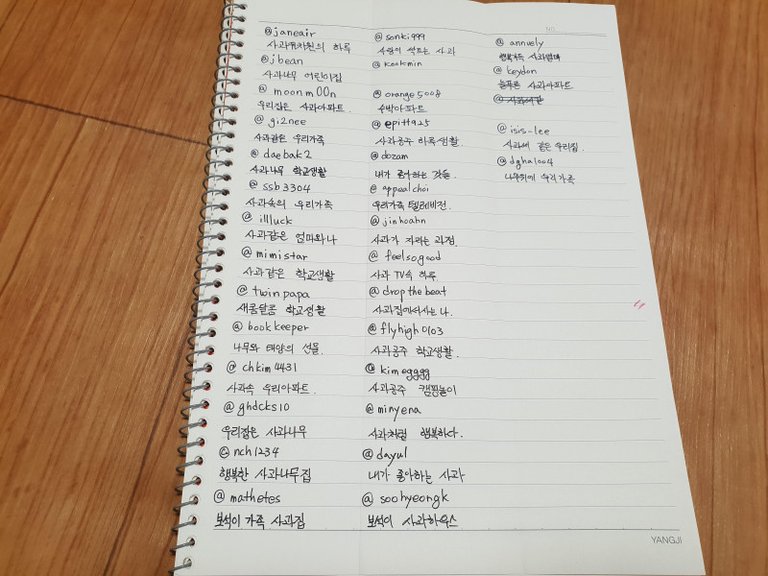 @janeair
사과유치원의 하루
@jbean
사과나무 어린이집
@moonm00n
우리집은 사과아파트.
@gi2nee
사과같은 우리가족
@daebak2
사과나무 학교생활
@ssb3304
사과속의 우리가족
@illluck
사과같은 엄마와나
@mimistar
사과같은 학교생활
@twinpapa
새콤달콤 학교생활
@bookkeeper
나무와 태양의 선물.
@chkim4431
사과속 우리아파트.
@ghdcks10
우리집은 사과나무
@nch1234
행복한 사과나무집
@mathetes
보석이 가족 사과집
@sonki999
사랑이 싹트는 사과
@kookmin
@orange5008
수박아파트
@epitt925
사과공주 하루생활
@dozam
내가 좋아하는 것들.
@appealchoi
우리가족 텔레비전.
@jinhoahn
사과가 자라는 과정
@feelsogood
사과 TV속 하루
@dropthebeat
사과집에서사는 나.
@flyhigh0103
사과공주 학교생활.
@kimegggg
사과공주 캠핑놀이
@minyena
사과처럼 행복하다.
@dayul
내가 좋아하는 사과
@soohyeongk
보석이 사과하우스
@annuely
행복가득 사과열매
@keydon
늘푸른 사과아파트
@isis-lee
사과씨 같은 우리집
@dgha1004
나무위에 우리가족
YANGJI